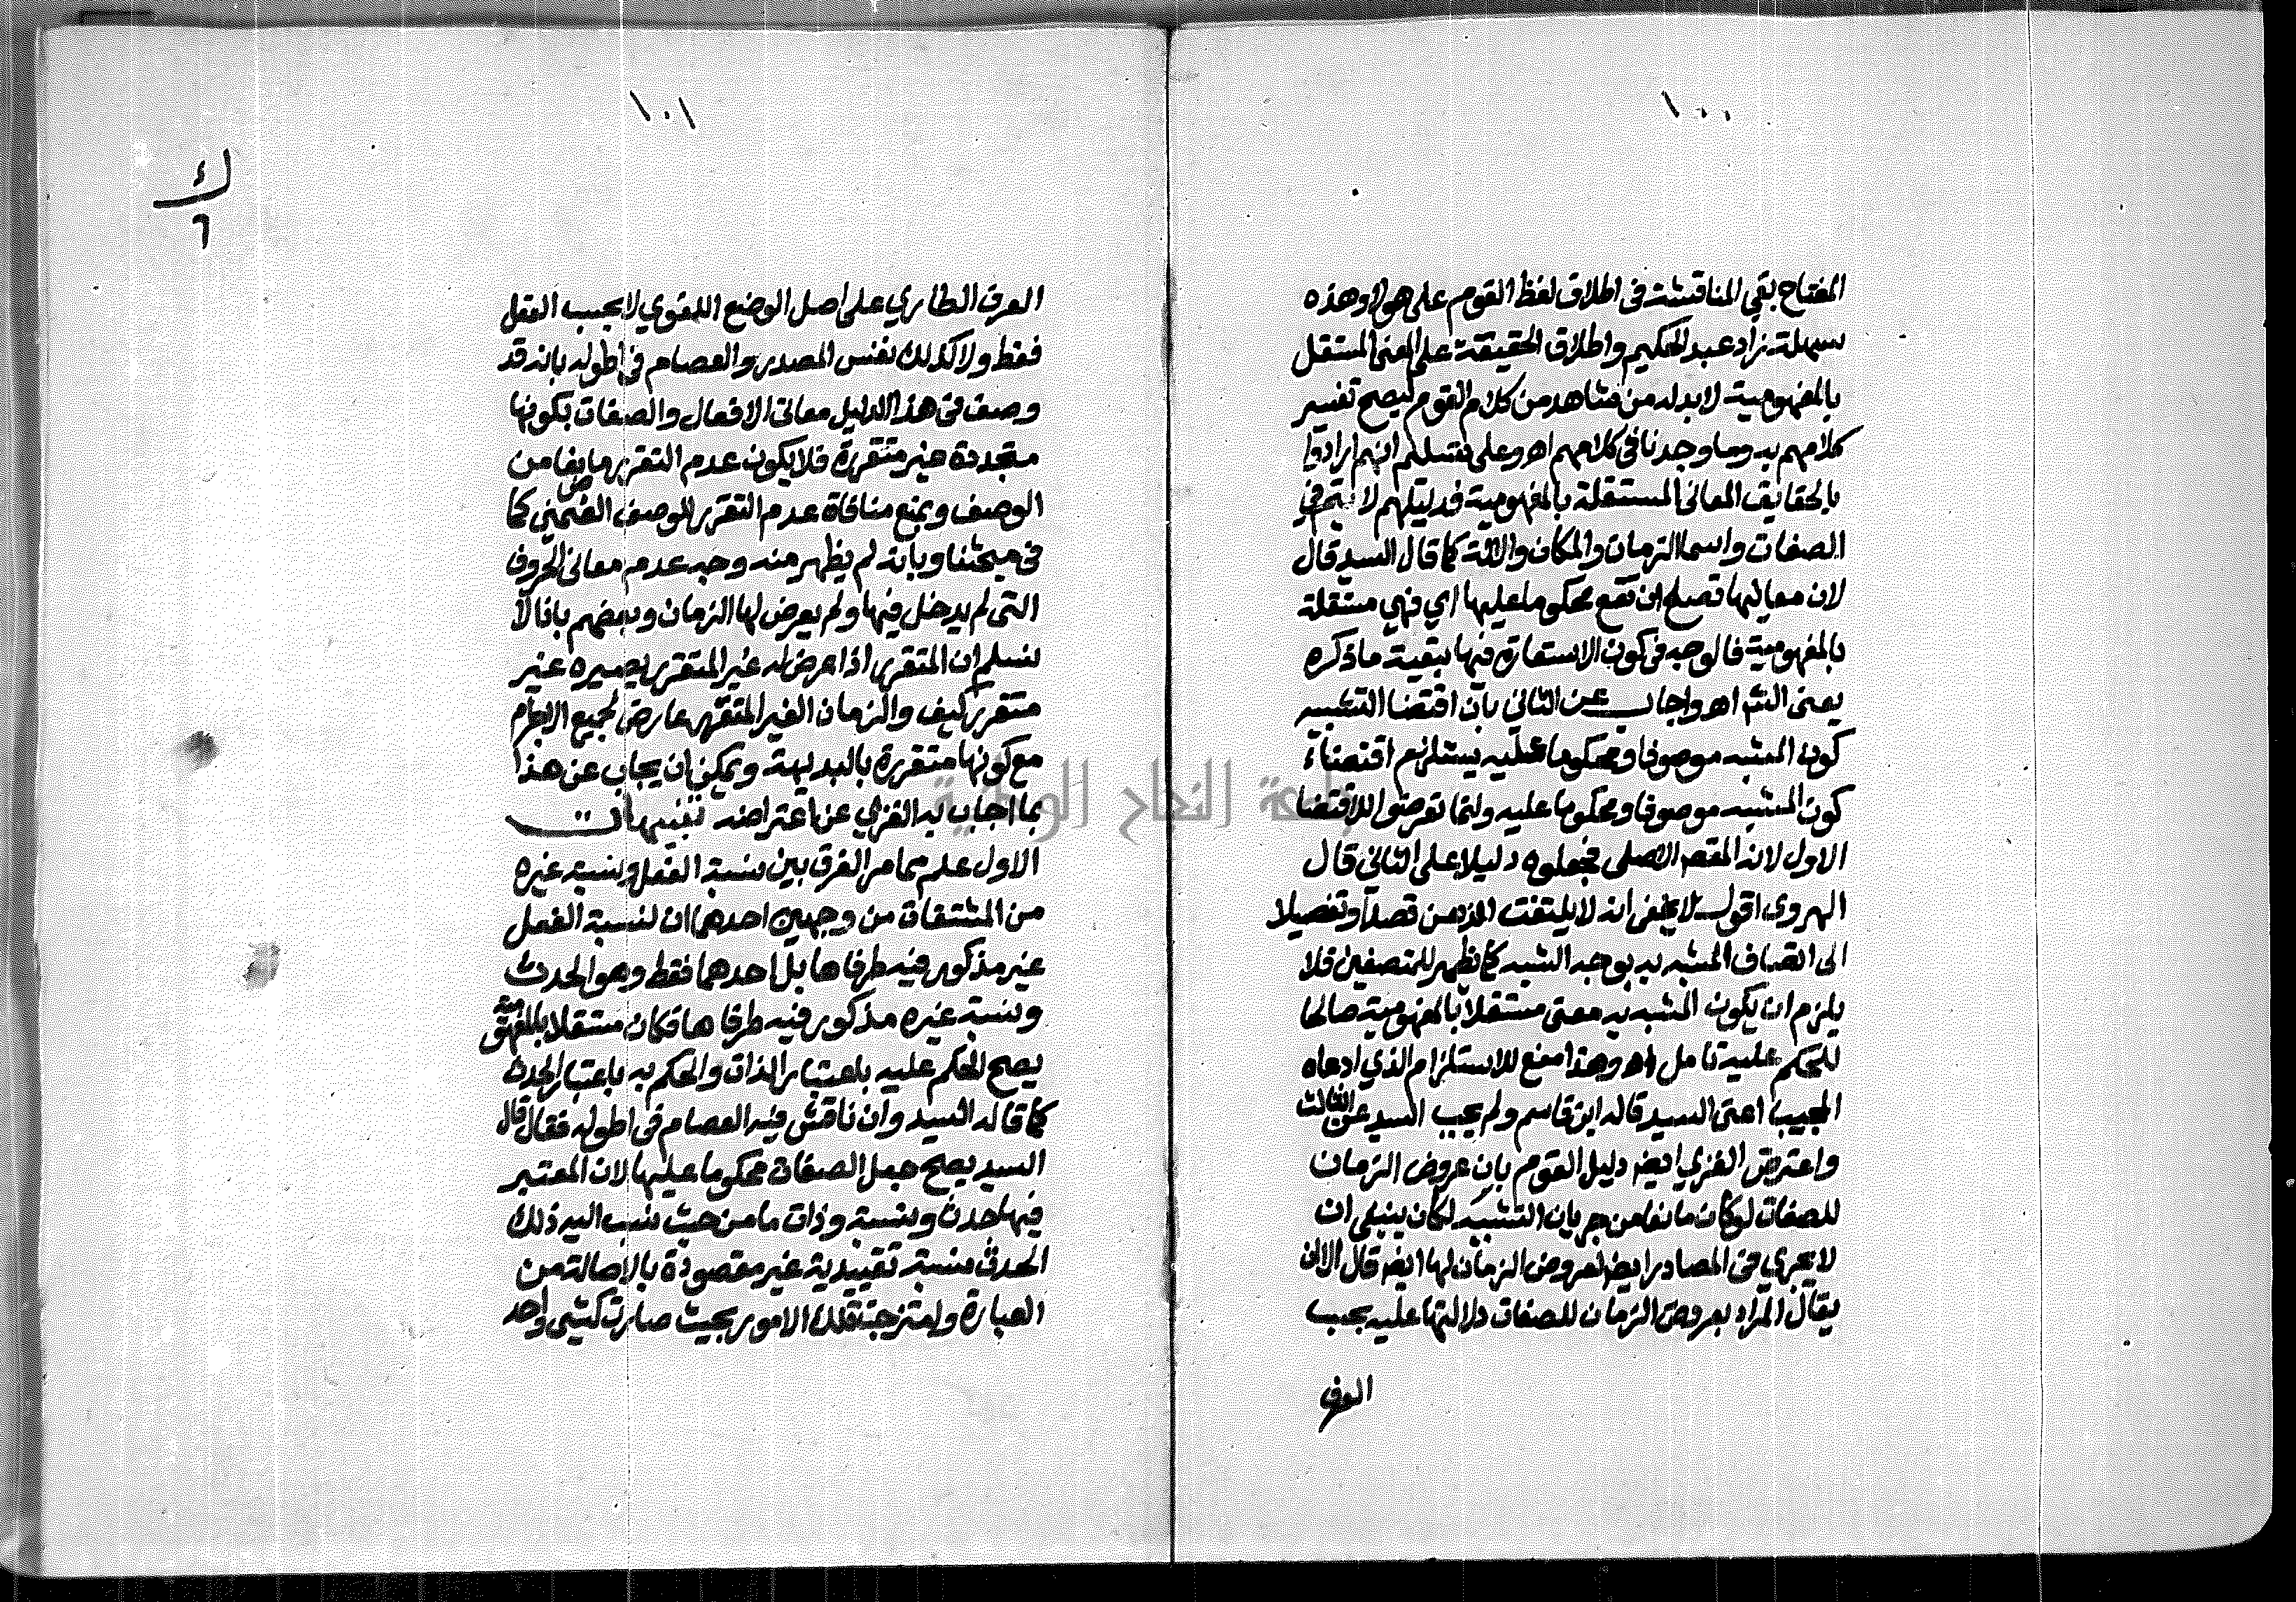 ١٠٠
المفتاح بقي المناقشة في اطلاق لفظ القوم على هولاء وهذه
سهلة زاد عبد الحكيم واطلاق الحقيقة على المعنى المستقل
بالمفهومية لا بد له من شاهد من كلام القوم ليصح تفسير
كلامهم به وما وجدنا في كلامهم اه وعلى تسليم انهم ارادوا
بالحقايق المعاني المستقلة بالمفهومية فدليلهم لا يتم في
الصفات واسما الزمان والمكان والالة كما قال السيد قال
لان معانيها تصلح ان تقع محكوما عليها اي فهي مستقلة
بالمفهومية فالوجه في كون الاستعارة فيها تبعية ما ذكره
يعنى الشر اه واجاب عن الثاني بان اقتضا التشبيه
كون المشبه موصوفا ومحكوما عليه يستلزم اقتضاء
كون المشبه موصوفا ومحكوما عليه وانما تعرضوا للاقتضا
الاول لانه المقصد الاصلي فجعلوه دليلا على الثاني قال
الهروي اقول لا يخفى انه لا يلتفت الذهن قصدا وتفصيلا
الى اتصاف المشبه به بوجه الشبه كما يظهر للمتصفين فلا
يلزم ان يكون المشبه به معنى مستقلا بالمفهومية صالحا
للحكم عليه تامل اه وهذا منع للاستلزام الذي ادعاه
المجيب اعنى السيد قاله ابن قاسم ولم يجب السيد عن الثالث
واعترض الغزي ايض دليل القوم بان عروض الزمان
للصفات لو كان مانعا من جريان التشبيه لكان ينبغي ان
لا يجري في المصادر ايض لعروض الزمان لها ايض قال الا ان
يقال المراد بعروض الزمان للصفات دلالتها عليه بحسب
العرف
١٠١
العرف الطاري على اصل الوضع اللغوي لا بحسب العقل
فقط ولا كذلك نفس المصدر والعصام في اطوله بانه قد
وصف في هذا الدليل معاني الافعال والصفات بكونها
متجددة غير متقررة فلا يكون عدم التقرر مانعا من
الوصف ويمنع منافاة عدم التقرر للوصف الضمني كما
في مبحثنا وبانه لم يظهر منه وجه عدم معاني الحروف
التي لم يدخل فيها ولم يعرض لها الزمان وبعضهم بانا لا
نسلم ان المتقرر اذا عرض له غير المتقرر يصيره غير
متقرر كيف والزمان الغير المتقرر عارض لجميع الاجرام
مع كونها متقررة بالبديهة ويمكن ان يجاب عن هذا
بما اجاب به الغزي عن اعتراضه تنبيهات
الاول علم مما مر الفرق بين نسبة الفعل ونسبة غيره
من المشتقات من وجهين احدهما ان نسبة الفعل
غير مذكور فيه طرفاها بل احدهما فقط وهو الحدث
ونسبة غيره مذكور فيه طرفاها فكان مستقلا بالمفهومية
يصح الحكم عليه باعتبار الذات والحكم به باعتبار الحدث
كما قاله السيد وان ناقش فيه العصام في اطوله فقال قال
السيد يصح جعل الصفات محكوما عليها لان المعتبر
فيها حدث ونسبة وذات ما من حيث نسب اليه ذلك
الحدث نسبة تقييدية غير مقصودة بالاصالة من
العبارة ولمتزجة تلك الامور بحيث صارت كشيء واحد